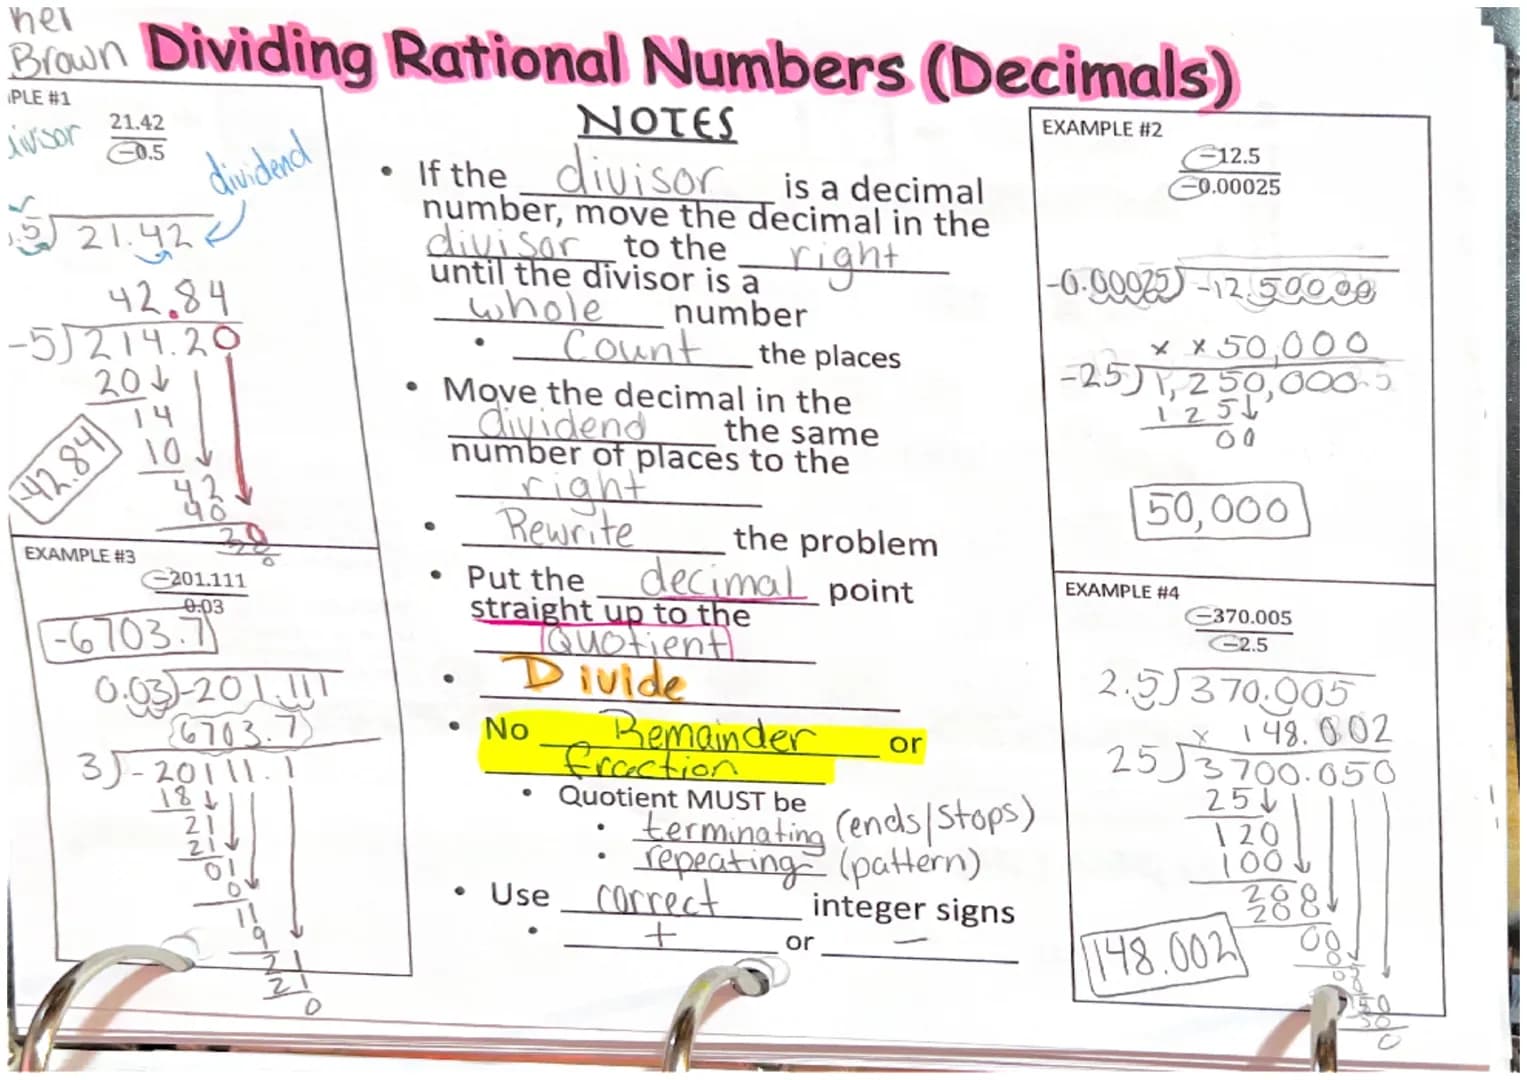 Brown
Dividing Rational Numbers (Decimals)
PLE #1
21.42
-0.5
dividend
.5) 21.42
42.84
-5) 214.20
20
14
10
42
40
20
20
0
-42.84
NOTES
If the divisor is a decimal
number, move the decimal in the
divisor to the right
until the divisor is a
whole number
Count the places
Move the decimal in the
dividend the same
number of places to the
right
Rewrite the problem
Put the decimal point
straight up to the
Quotient
Divide
No Remainder or
fraction
Quotient MUST be
terminating (ends/stops)
repeating (pattern)
Use correct integer signs
+ or −
EXAMPLE #2
-12.5
-0.00025
-0.00025) -12.50000
x x 50,000
-25) 1,250,000
125
00
50,000
EXAMPLE #3
-201.111
0.03
-6703.7
0.03) -201.111
6703.7
3) -20111.1
18
21
21
01
0
11
9
21
21
0
EXAMPLE #4
-370.005
-2.5
2.5) 370.005
x 148.002
25) 3700.050
25
120
100
200
200
00
0
50
50
0
148.002